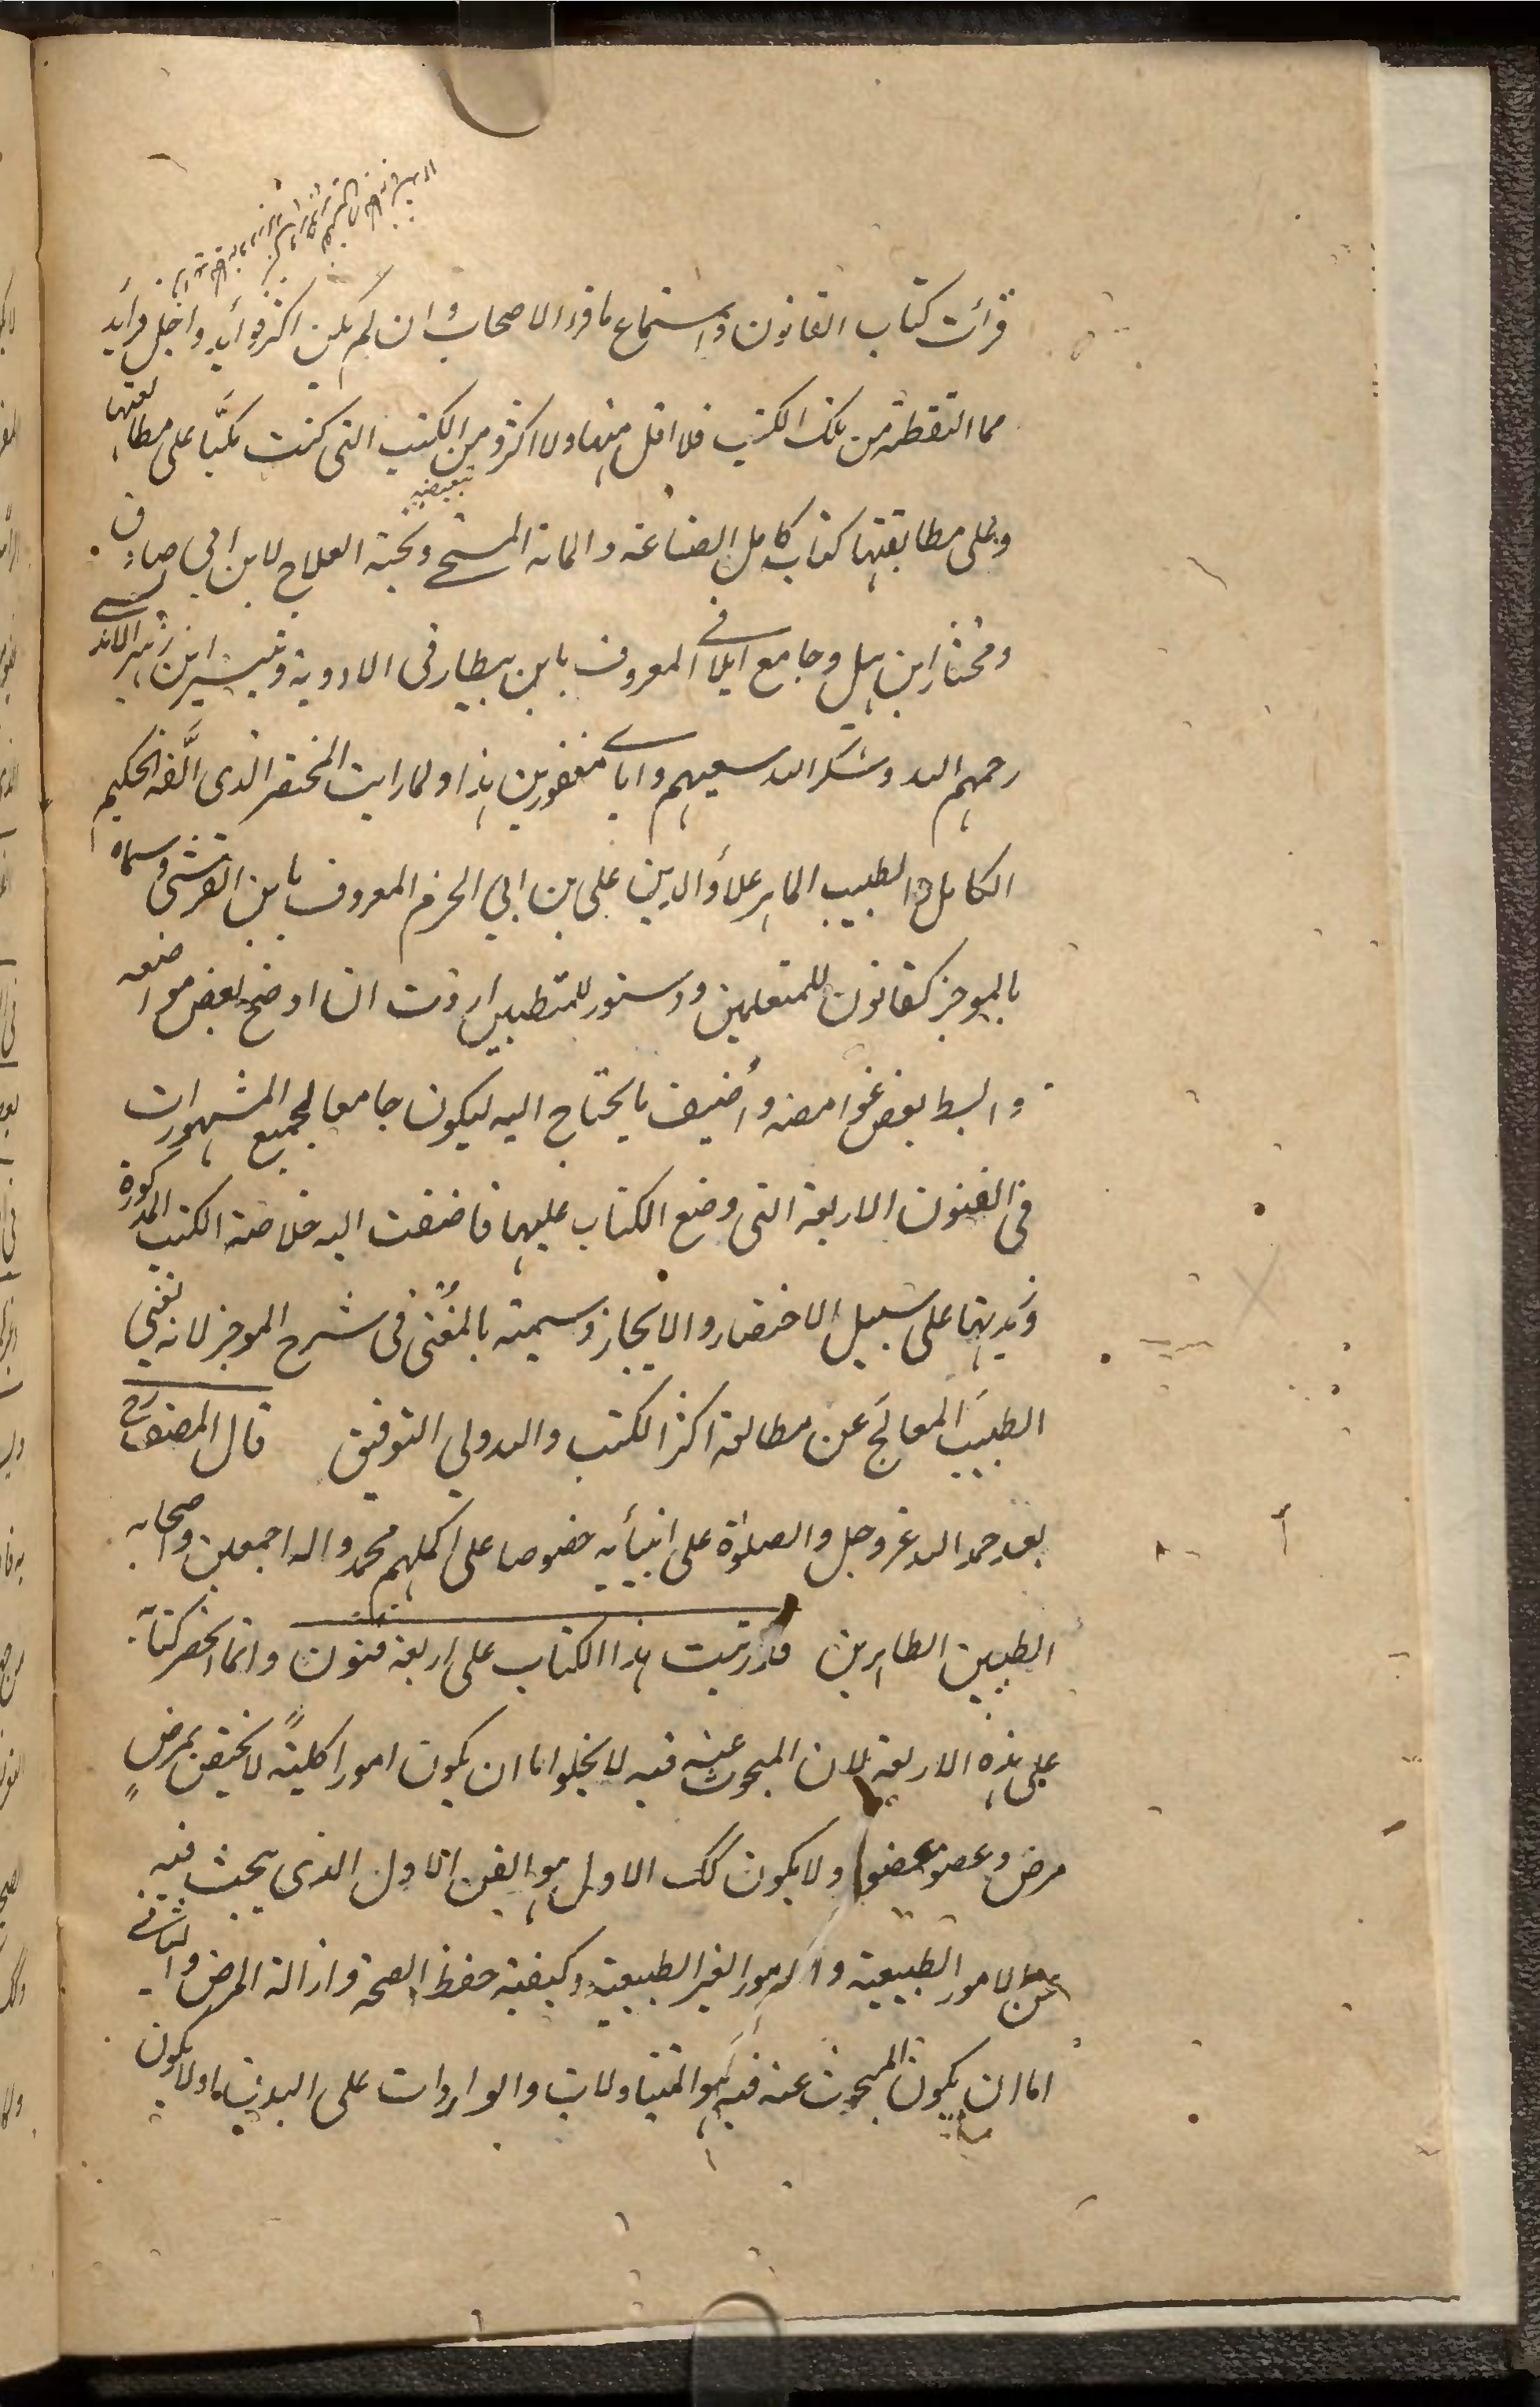 قرأت كتاب القانون واستماع ما قرء الاصحاب وان لم يكن اكثر فوأيد واجل فرأيد
مما التقطته من تلك الكتب فلا اقل منها ولا اكثر ومن الكتب التى كنت مكبَّا على مطالعتها
تبعيضيه
وعلى مطابقتها كتاب كامل الصناعة والمائة المسيحى ونخبة العلاج لابن ابى صادق
ومختار ابن هبل وجامع المعروف بابن بيطار فى الادوية وتيسير ابن زهر الاندلسى
رحمهم الله وشكر الله سعيهم واياى مغفورين هذا ولما رايت المختصر الذى الَّفه الحكيم
الكامل والطبيب الماهر علاؤالدين على بن ابى الحزم المعروف بابن القرشى وسماه
بالموجز كقانون للمتعلمين ودستور للمتطببين اردت ان اوضح بعض مواضعه
وابسط بعض غوامضه وأضيف ما يحتاج اليه ليكون جامعا لجميع المشهورات
فى الفنون الاربعة التى وضع الكتاب عليها فاضفت اليه خلاصة الكتب المذكورة
وزبدتها على سبيل الاختصار والايجاز وسميته بالمغنى فى شرح الموجز لانه تغنى
الطبيبَ المعالجَ عن مطالعة اكثر الكتب والله ولى التوفيق قال المصنف رح
بعد حمد الله عزوجل والصلوٰة على انبيأيه خصوصا على اكملهم محمد واله اجمعين وصحابه
الطيبين الطاهرين قد رتبت هذا الكتاب على اربعة فنون وانما انحصر كتابه
على هذه الاربعة لان المبحوث عنه فيه لا يخلو اما ان يكون امورا كليةً لا تختص بمرضٍ
مرض وعضو عضو او لا يكون كك الاول هو الفن الاول الذى يبحث فيه
عن الامور الطبيعية والامور الغير الطبيعية وكيفية حفظ الصحة وازالة المرض والثانى
اما ان يكون المبحوث عنه فيه هو المتناولات والواردات على البدن او لا يكون